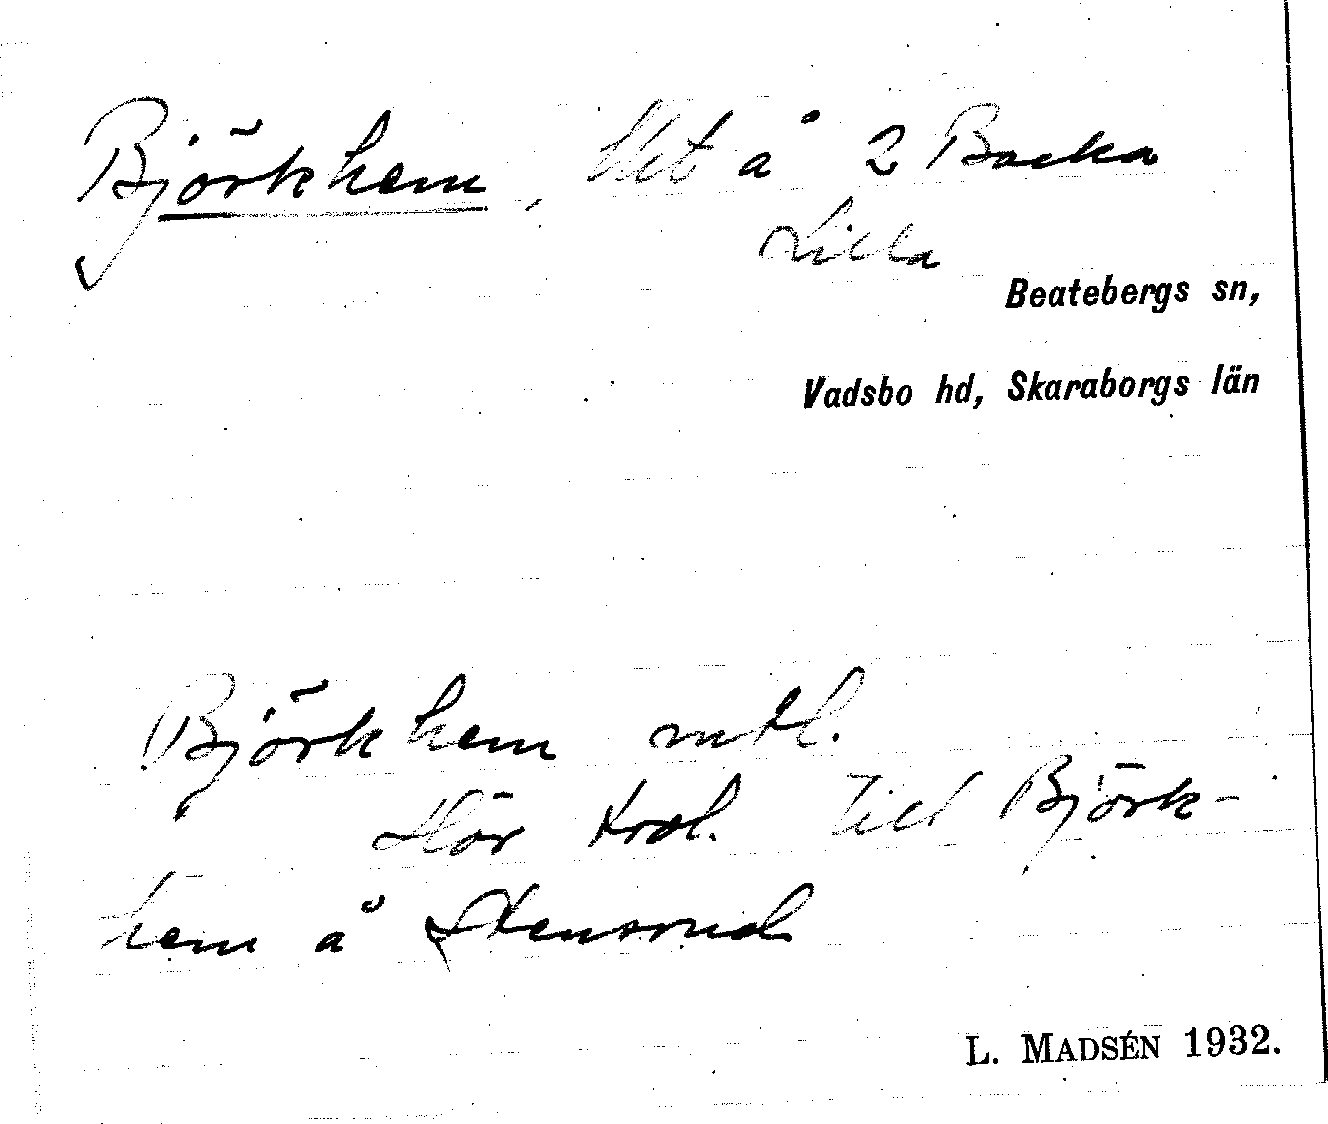 Björkhem, lht å 2 Backa
Lilla
Beatebergs sn,
Vadsbo hd, Skaraborgs län
Björkhem mtl.
Hör trol. till Björk-
hem å Stensrud
L. MADSÉN 1932.